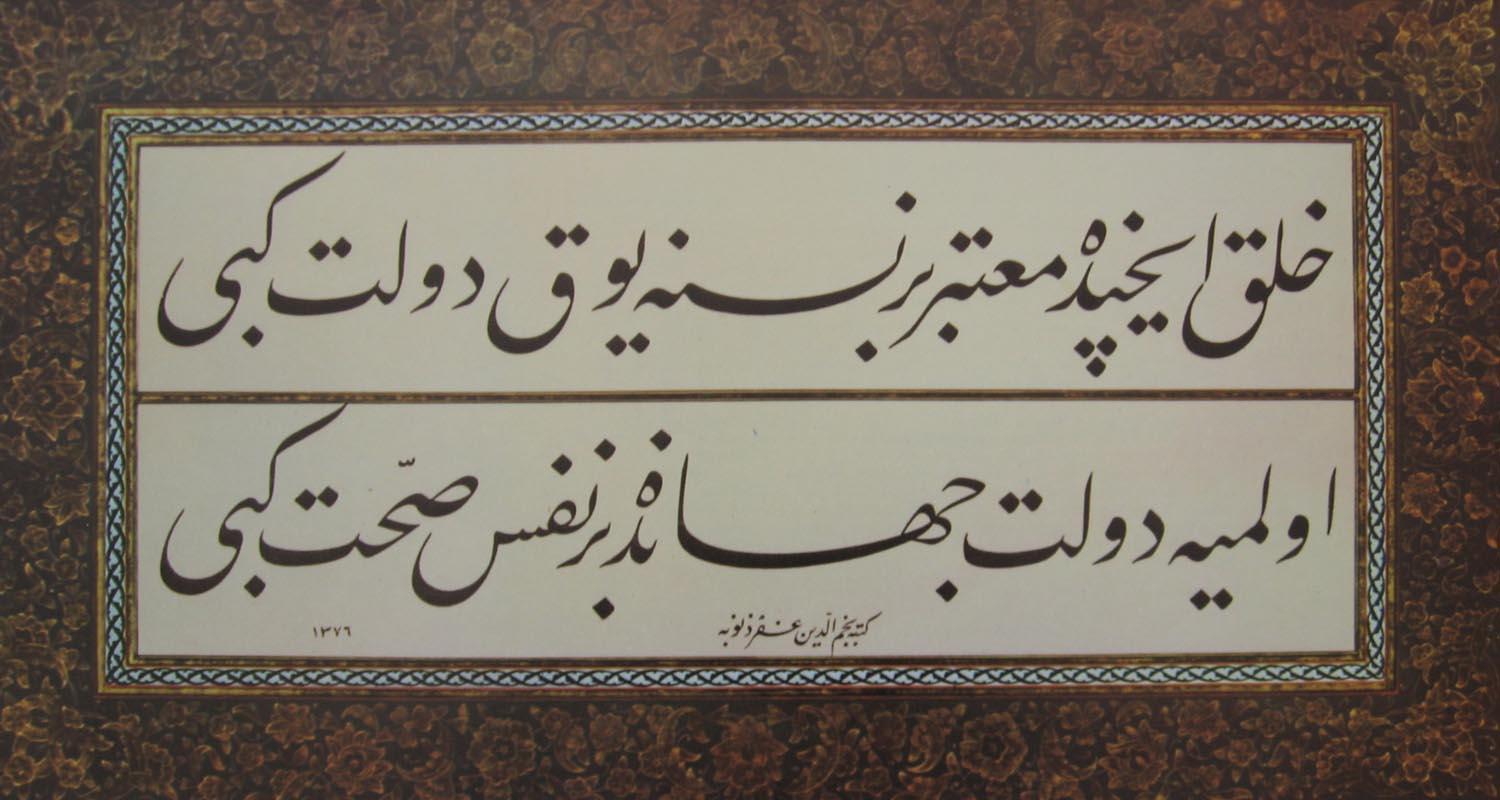 خلق ایچیده معتبر بر نسنه یوق دولت کبی
اولمیه دولت جهانده بر نفس صحّت کبی
کتبه نجم الدّین غفر ذنوبه
١٣٧٦